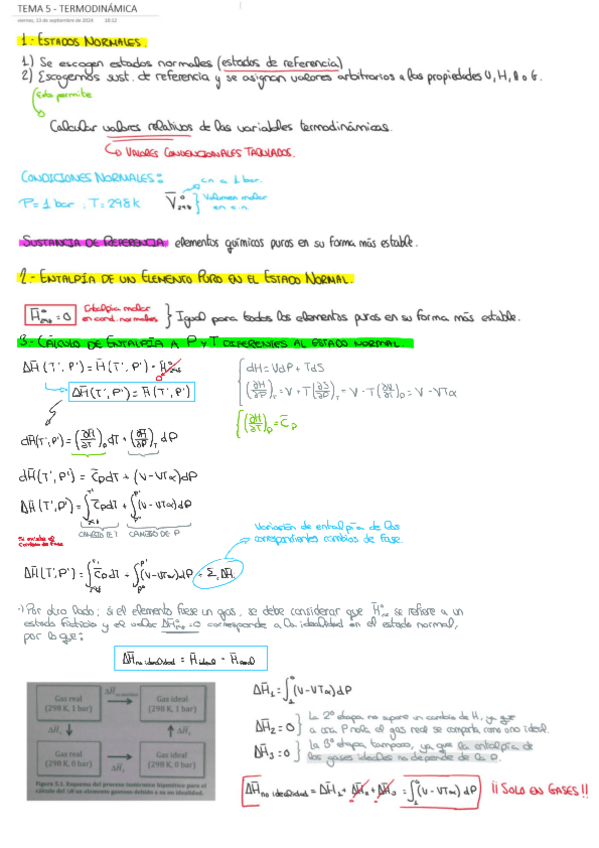 TEMA 5 - TERMODINÁMICA
viernes, 13 de septiembre de 2024 18:12
1.- ESTADOS NORMALES.
1) Se escogen estados normales (estados de referencia)
2) Escogemos sust. de referencia y se asignan valores arbitrarios a las propiedades U, H, A o G.
Esto permite
Calcular valores relativos de las variables termodinámicas.
VALORES CONVENCIONALES TABULADOS.
CONDICIONES NORMALES:
P = 1 bar, T = 298 K
V̄°₂₉₈ } Volumen molar en c.n.
c.n a 1 bar.
SUSTANCIA DE REFERENCIA: elementos químicos puros en su forma más estable.
2.- ENTALPÍA DE UN ELEMENTO PURO EN EL ESTADO NORMAL.
H̄°₂₉₈ = 0 Entalpía molar en cond. normales } Igual para todos los elementos puros en su forma más estable.
3.- CÁLCULO DE ENTALPÍA A P y T DIFERENTES AL ESTADO NORMAL.
ΔH̄(T', P') = H̄(T', P') - H̄°₂₉₈
0
ΔH̄(T', P') = H̄(T', P')
dH = VdP + TdS
(∂H/∂P)_T = V + T(∂S/∂P)_T = V - T(∂V/∂T)_P = V - VTα
(∂H/∂T)_P = C̄_P
dH̄(T', P') = (∂H/∂T)_P dT + (∂H/∂P)_T dP
dH̄(T', P') = C̄_P dT + (V - VTα)dP
ΔH̄(T', P') = ∫C̄_P dT + ∫(V - VTα)dP
CAMBIO DE T CAMBIO DE P
Si existe el cambio de fase
Variación de entalpía de los correspondientes cambios de fase.
ΔH̄(T', P') = ∫C̄_P dT + ∫(V - VTα)dP + Σ ΔH̄
·) Por otro lado; si el elemento fuese un gas, se debe considerar que H̄°₂₉₈ se refiere a un
estado ficticio y el valor ΔH̄°₂₉₈ = 0 corresponde a la idealidad en el estado normal,
por lo que:
ΔH̄ no idealidad = H̄ ideal - H̄ real
Gas real
(298 K, 1 bar)
ΔH̄ no idealidad
Gas ideal
(298 K, 1 bar)
ΔH̄₁
ΔH̄₃
Gas real
(298 K, 0 bar)
ΔH̄₂
Gas ideal
(298 K, 0 bar)
Figura 5.1. Esquema del proceso isotérmico hipotético para el
cálculo del ΔH̄ un elemento gaseoso debido a su no idealidad.
ΔH̄₁ = ∫₁⁰ (V - VTα)dP
ΔH̄₂ = 0 } La 2ª etapa no supone un cambio de H, ya que
a una P nula el gas real se comporta como uno ideal.
ΔH̄₃ = 0 } La 3ª etapa tampoco, ya que la entalpía de
los gases ideales no depende de la P.
ΔH̄ no idealidad = ΔH̄₁ + ΔH̄₂ + ΔH̄₃ = ∫₁⁰ (V - VTα) dP ¡¡ SOLO EN GASES !!